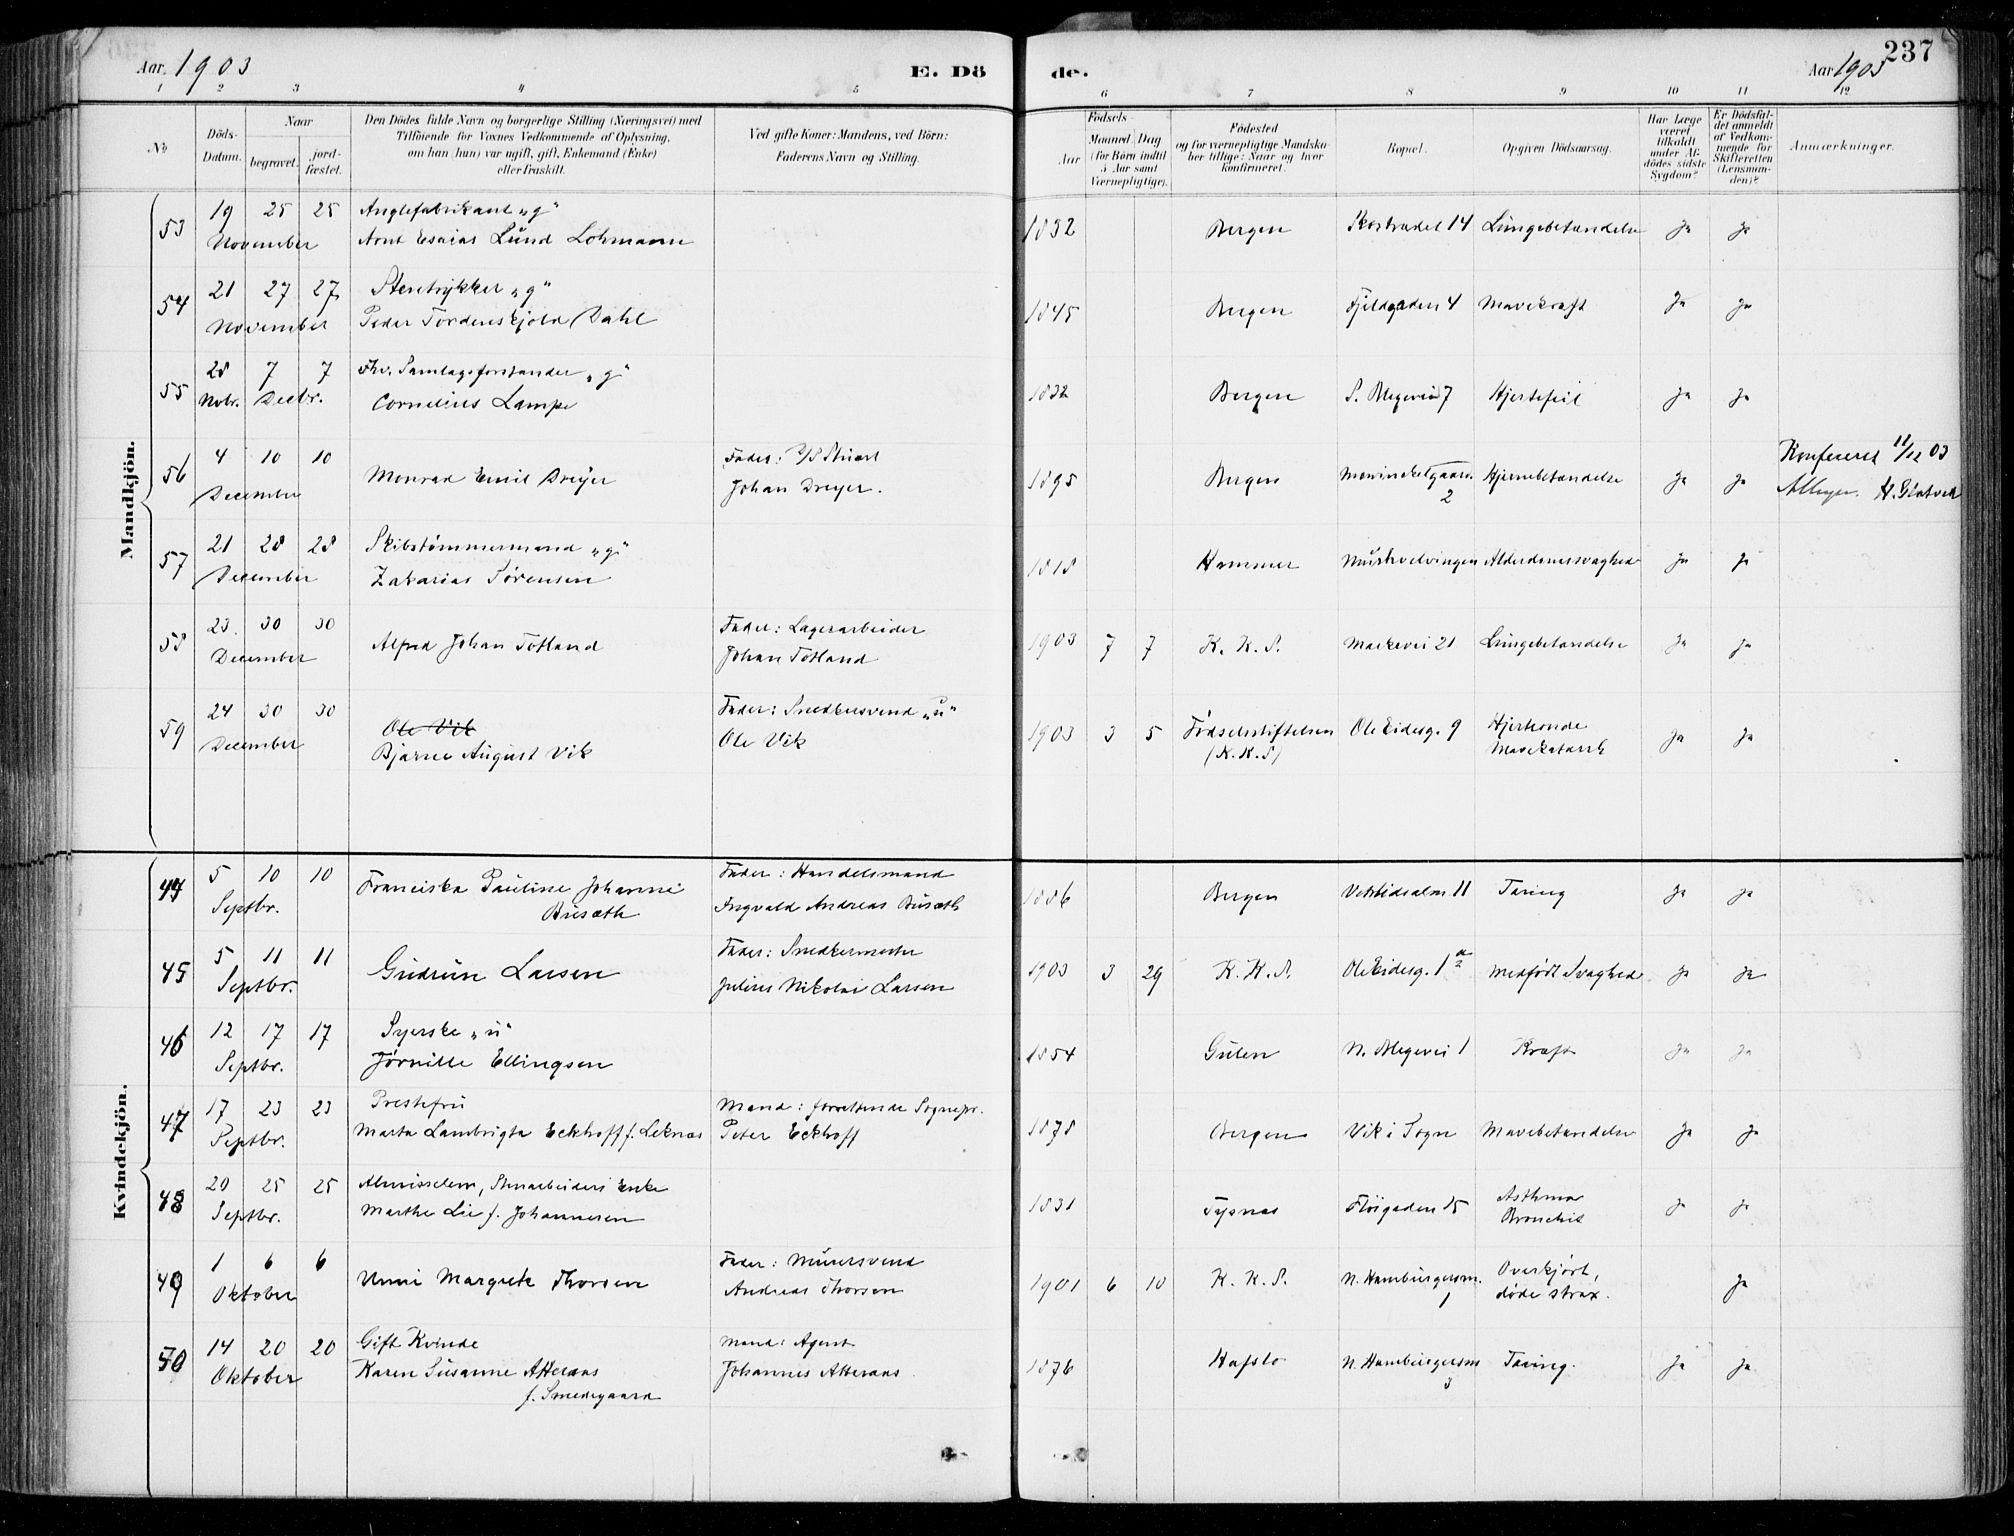 Aar. 1903
E. Dö
de.
Aar 1903
237
1 2 3 4 5 6 7 8 9 10 11 12
No
Döds-Datum.
Naar
begravet.
jord-fæstet.
Den Dödes fulde Navn og borgerlige Stilling (Næringsvei) med
Tilföiende for Voxnes Vedkommende af Oplysning,
om han (hun) var ugift, gift, Enkemand (Enke)
eller fraskilt.
Ved gifte Koner: Mandens, ved Börn:
Faderens Navn og Stilling.
Födsels-
Aar
Maaned Dag
(for Börn indtil
5 Aar samt
Værnepligtige).
Födested
og for værnepligtige Mandska-
ber tillige: Naar og hvor
konfirmeret.
Bopæl.
Opgiven Dödsaarsag.
Har Læge
været
tilkaldt
under Af-
dödes sidste
Sygdom?
Er Dödsfal-
det anmeldt
af Vedkom-
mende for
Skifteretten
(Lensman-
den)?
Anmærkninger.
Mandkjön.
53 19 November 25 25 Anglefabrikant „g“
Arnt Esaias Lund Lohmann 1832 Bergen Skostrædet 14 Lungebetændelse Ja Ja
54 21 November 27 27 Stentrykker „g“
Peder Tordenskjold Dahl 1845 Bergen Fjeldgaden 4 Mavekræft Ja Ja
55 28 Novbr. 7 7 Decbr. Fhv. Samlagsforstander „g“
Cornelius Lampe 1832 Bergen S. Blegevei 7 Hjertefeil Ja Ja
56 4 December 10 10 Monrad Emil Dreyer Fader: D/S Stuert
Johan Dreyer. 1895 Bergen 2 Hjernebetændelse Ja Ja Konfereret 11/12 03
57 21 December 28 28 Skibstømmermand „g“
Zakarias Sørensen 1818 Hammer Murhvelvingen Alderdomssvaghed Ja Ja
58 23. December 30 30 Alfred Johan Totland Fader: Lagerarbeider
Johan Totland 1903 7 7 K. K. S. Markevei 21 Lungebetændelse Ja Ja
59 24 December 30 30 Ole Vik
Bjarne August Vik Fader: Snedkersvend „u“
Ole Vik 1903 3 5 Fødselsstiftelsen
(K. K. S) Ole Eidesg. 9 Hjerteonde
Mavekatarrh Ja Ja
Kvindekjön.
44 5 Septbr. 10 10 Franciska Pauline Johanne
Busæth Fader: Handelsmand
Ingvald Andreas Busæth 1886 Bergen Vetrlidsalm. 11 Tæring Ja Ja
45 5 Septbr. 11 11 Gudrun Larsen Fader: Snedkermester
Julius Nikolai Larsen 1903 3 29 K. K. S. Ole Eidesg. 1 a/2 Medfødt Svaghed Ja Ja
46 12 Septbr. 17 17 Syerske „u“
Jørnille Ellingsen 1854 Gulen N. Blegevei 1 Kræft Ja Ja
47 17 Septbr. 23 23 Prestefru
Marta Lambrigta Eckhoff f. Leknæs Mand: forrettende Sognepr.
Peter Eckhoff 1878 Bergen Vik i Sogn Mavebetændelse Ja Ja
48 20 Septbr. 25 25 Almisselem, Stuearbeiders Enke
Marthe Lie f. Johannesen 1831 Tysnæs Fløigaden 15 Asthma
Bronchit Ja Ja
49 1 Oktober 6 6 Unni Margrete Thorsen Fader: Murersvend
Andreas Thorsen 1901 6 10 K. K. S. N. Hamburgersm.
1 Overkjørt,
døde strax. Ja
50 14 Oktober 20 20 Gift Kvinde
Karen Susanne Atteraas
f. Smedegaard Mand: Agent
Johannes Atteraas 1876 Hafslo N. Hamburgersm
3 Tæring. Ja Ja